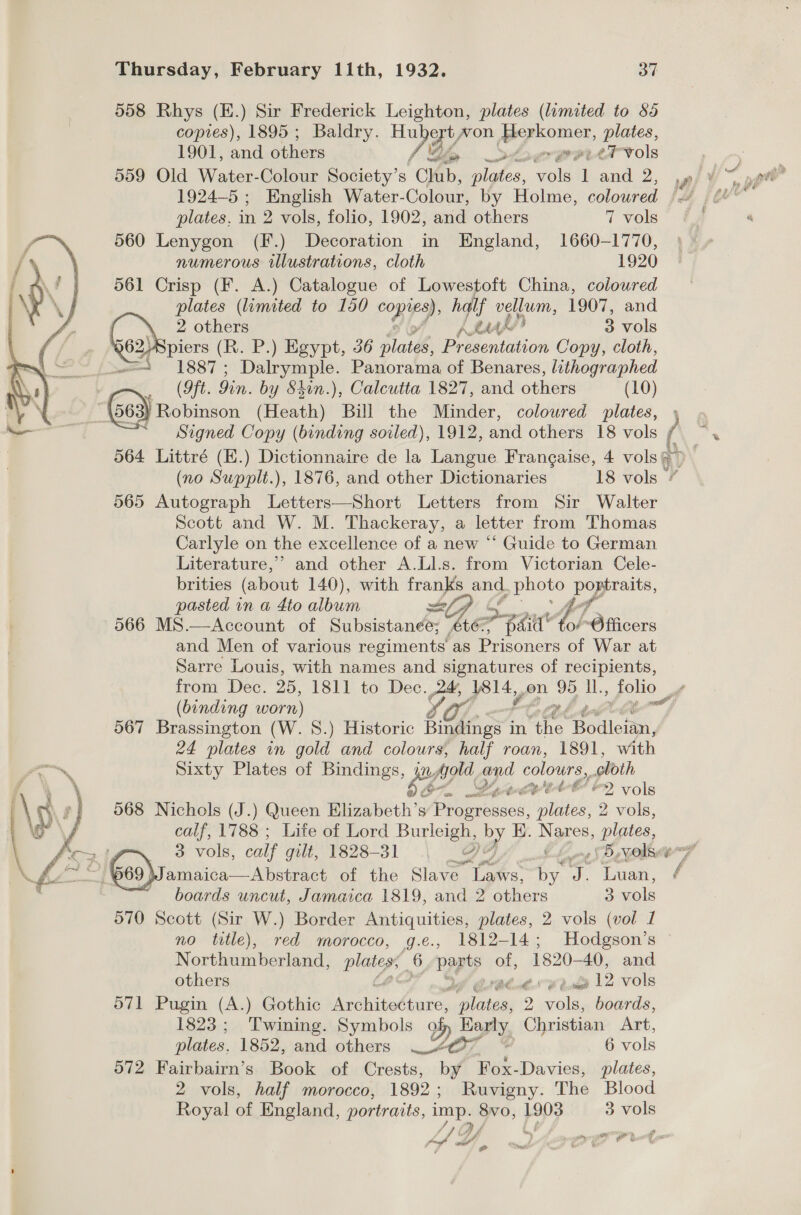 Thursday, February 11th, 1932. 37
558 Rhys (E.) Sir Frederick Leighton, plates (limited to 85
copies), 1895 ; Baldry. Hubert von Herkomer, plates,
1901, and others vols
559 Old Water-Colour Society's Club, plates, vols 1 and 2,
1924–5 ; English Water-Colour, by Holme, coloured
plates, in 2 vols, folio, 1902, and others 7 vols
560 Lenygon (F.) Decoration in England, 1660–1770,
numerous illustrations, cloth 1920
561 Crisp (F. A.) Catalogue of Lowestoft China, coloured
plates (limited to 150 copies), half vellum, 1907, and
2 others 3 vols
562 Spiers (R. P.) Egypt, 36 plates, Presentation Copy, cloth,
1887 ; Dalrymple. Panorama of Benares, lithographed
(9ft. 9in. by 8¾in.), Calcutta 1827, and others (10)
563 Robinson (Heath) Bill the Minder, coloured plates,
Signed Copy (binding soiled), 1912, and others 18 vols
564 Littré (E.) Dictionnaire de la Langue Française, 4 vols
(no Supplt.), 1876, and other Dictionaries 18 vols
565 Autograph Letters—Short Letters from Sir Walter
Scott and W. M. Thackeray, a letter from Thomas
Carlyle on the excellence of a new “ Guide to German
Literature,” and other A.Ll.s. from Victorian Cele-
brities (about 140), with franks and photo portraits,
pasted in a 4to album
566 MS.—Account of Subsistanée; été, paid to Officers
and Men of various regiments as Prisoners of War at
Sarre Louis, with names and signatures of recipients,
from Dec. 25, 1811 to Dec. 24, 1814, on 95 ll., folio
(binding worn)
567 Brassington (W. S.) Historic Bindings in the Bodleian,
24 plates in gold and colours, half roan, 1891, with
Sixty Plates of Bindings, in gold and colours, cloth
2 vols
568 Nichols (J.) Queen Elizabeth's Progresses, plates, 2 vols,
calf, 1788 ; Life of Lord Burleigh, by E. Nares, plates,
3 vols, calf gilt, 1828–31 5 vols
569 Jamaica—Abstract of the Slave Laws, by J. Luan,
boards uncut, Jamaica 1819, and 2 others 3 vols
570 Scott (Sir W.) Border Antiquities, plates, 2 vols (vol 1
no title), red morocco, g.e., 1812–14 ; Hodgson's
Northumberland, plates, 6 parts of, 1820–40, and
others 12 vols
571 Pugin (A.) Gothic Architecture, plates, 2 vols, boards,
1823 ; Twining. Symbols of Early Christian Art,
plates, 1852, and others 6 vols
572 Fairbairn's Book of Crests, by Fox-Davies, plates,
2 vols, half morocco, 1892 ; Ruvigny. The Blood
Royal of England, portraits, imp. 8vo, 1903 3 vols